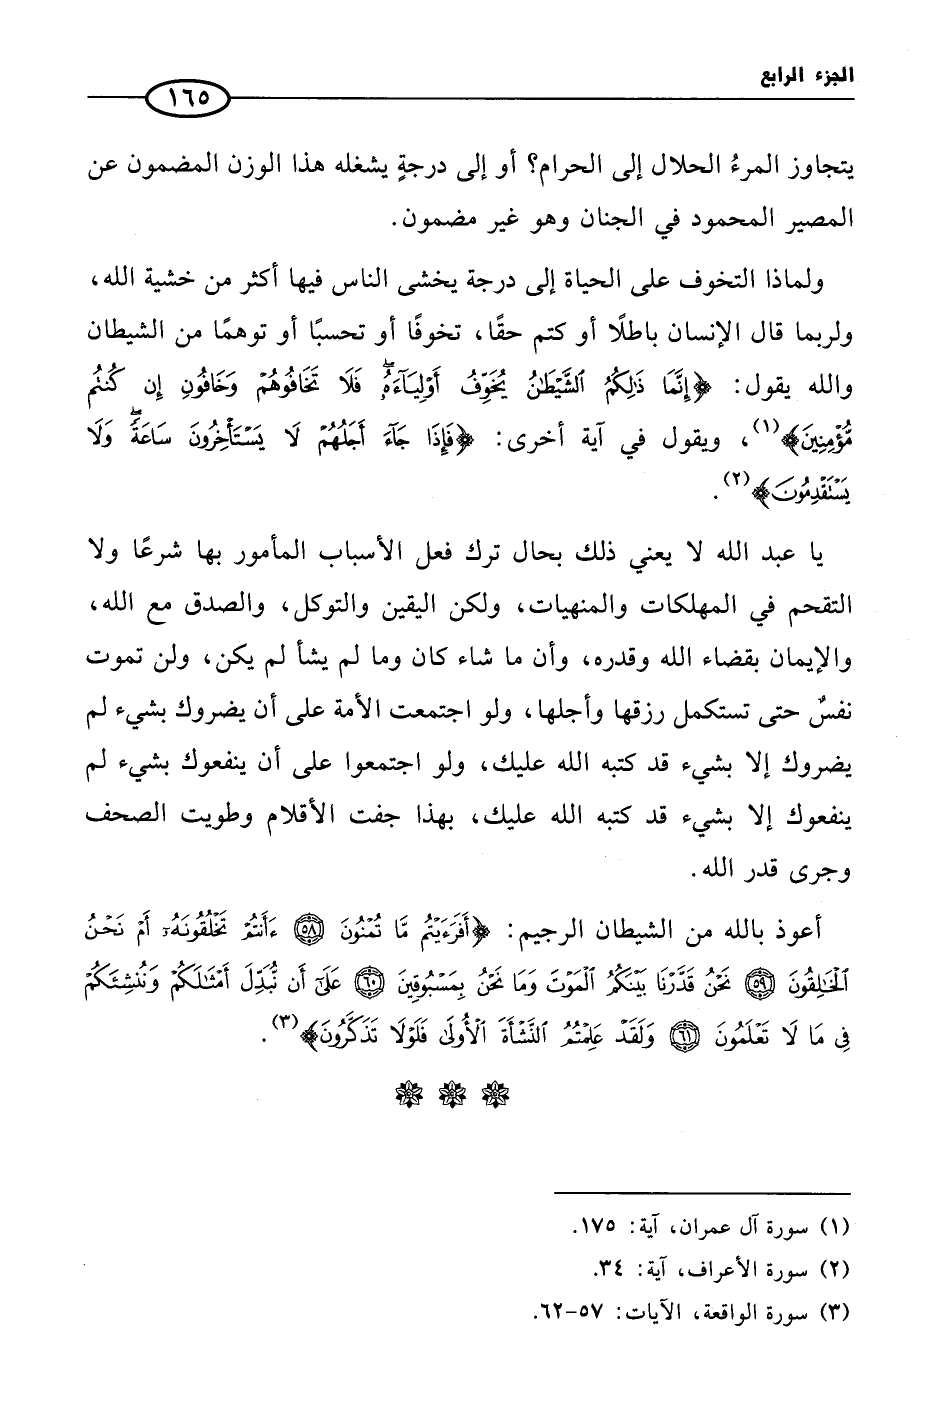 الجزء الرابع
١٦٥
يتجاوز المرءُ الحلال إلى الحرام؟ أو إلى درجةٍ يشغله هذا الوزن المضمون عن
المصير المحمود في الجنان وهو غير مضمون.
ولماذا التخوف على الحياة إلى درجة يخشى الناس فيها أكثر من خشية الله،
ولربما قال الإنسان باطلًا أو كتم حقًا، تخوفًا أو تحسبًا أو توهمًا من الشيطان
والله يقول: ﴿إِنَّمَا ذَٰلِكُمُ ٱلشَّيْطَٰنُ يُخَوِّفُ أَوْلِيَآءَهُۥۖ فَلَا تَخَافُوهُمْ وَخَافُونِ إِن كُنتُم
مُّؤْمِنِينَ﴾(١)، ويقول في آية أخرى: ﴿فَإِذَا جَآءَ أَجَلُهُمْ لَا يَسْتَأْخِرُونَ سَاعَةًۖ وَلَا
يَسْتَقْدِمُونَ﴾(٢).
يا عبد الله لا يعني ذلك بحال ترك فعل الأسباب المأمور بها شرعًا ولا
التقحم في المهلكات والمنهيات، ولكن اليقين والتوكل، والصدق مع الله،
والإيمان بقضاء الله وقدره، وأن ما شاء كان وما لم يشأ لم يكن، ولن تموت
نفسٌ حتى تستكمل رزقها وأجلها، ولو اجتمعت الأمة على أن يضروك بشيء لم
يضروك إلا بشيء قد كتبه الله عليك، ولو اجتمعوا على أن ينفعوك بشيء لم
ينفعوك إلا بشيء قد كتبه الله عليك، بهذا جفت الأقلام وطويت الصحف
وجرى قدر الله.
أعوذ بالله من الشيطان الرجيم: ﴿أَفَرَءَيْتُم مَّا تُمْنُونَ ٥٨ ءَأَنتُمْ تَخْلُقُونَهُۥٓ أَمْ نَحْنُ
ٱلْخَٰلِقُونَ ٥٩ نَحْنُ قَدَّرْنَا بَيْنَكُمُ ٱلْمَوْتَ وَمَا نَحْنُ بِمَسْبُوقِينَ ٦٠ عَلَىٰٓ أَن نُّبَدِّلَ أَمْثَٰلَكُمْ وَنُنشِئَكُمْ
فِى مَا لَا تَعْلَمُونَ ٦١ وَلَقَدْ عَلِمْتُمُ ٱلنَّشْأَةَ ٱلْأُولَىٰ فَلَوْلَا تَذَكَّرُونَ﴾(٣).
(١) سورة آل عمران، آية: ١٧٥.
(٢) سورة الأعراف، آية: ٣٤.
(٣) سورة الواقعة، الآيات: ٥٧-٦٢.